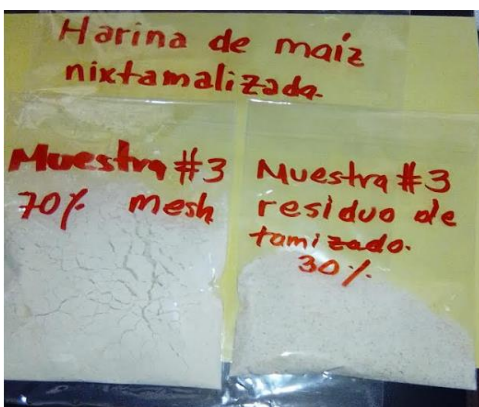 Harina de maíz
nixtamalizada.
Muestra #3
70% mesh
Muestra #3
residuo de
tamizado.
30%